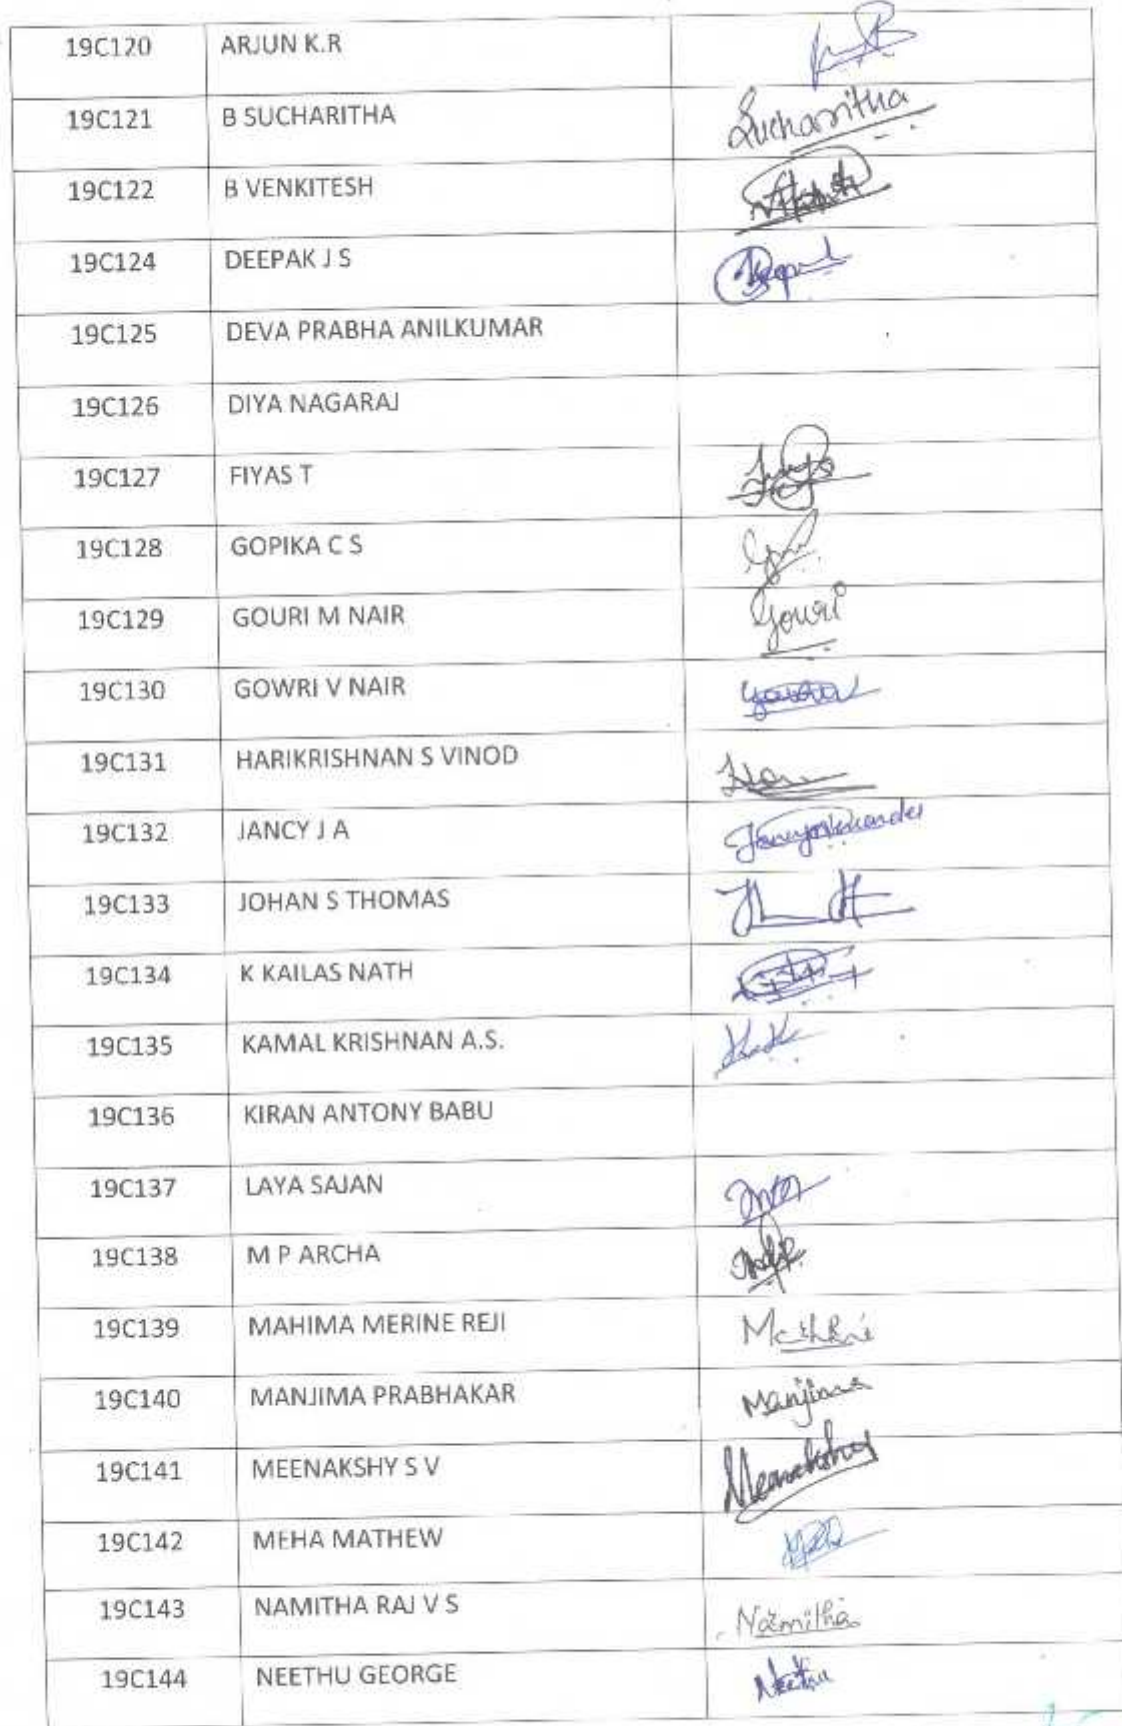 19C120 ARJUN K.R
19C121 B SUCHARITHA Sucharitha
19C122 B VENKITESH
19C124 DEEPAK J S Deepak
19C125 DEVA PRABHA ANILKUMAR
19C126 DIYA NAGARAJ
19C127 FIYAS T
19C128 GOPIKA C S
19C129 GOURI M NAIR Gouri
19C130 GOWRI V NAIR
19C131 HARIKRISHNAN S VINOD
19C132 JANCY J A
19C133 JOHAN S THOMAS
19C134 K KAILAS NATH
19C135 KAMAL KRISHNAN A.S.
19C136 KIRAN ANTONY BABU
19C137 LAYA SAJAN
19C138 M P ARCHA
19C139 MAHIMA MERINE REJI
19C140 MANJIMA PRABHAKAR Manjima
19C141 MEENAKSHY S V Meenakshy
19C142 MEHA MATHEW
19C143 NAMITHA RAJ V S Namitha
19C144 NEETHU GEORGE Neethu